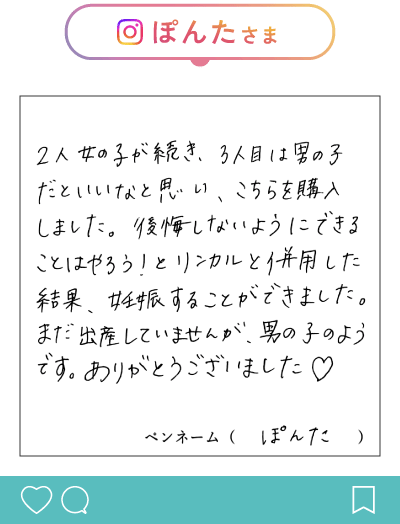 ぽんたさま
2人女の子が続き、3人目は男の子
だといいなと思い、こちらを購入
しました。後悔しないようにできる
ことはやろう！とリンカルと併用した
結果、妊娠することができました。
まだ出産していませんが、男の子のよう
です。ありがとうございました♡
ペンネーム（ ぽんた ）